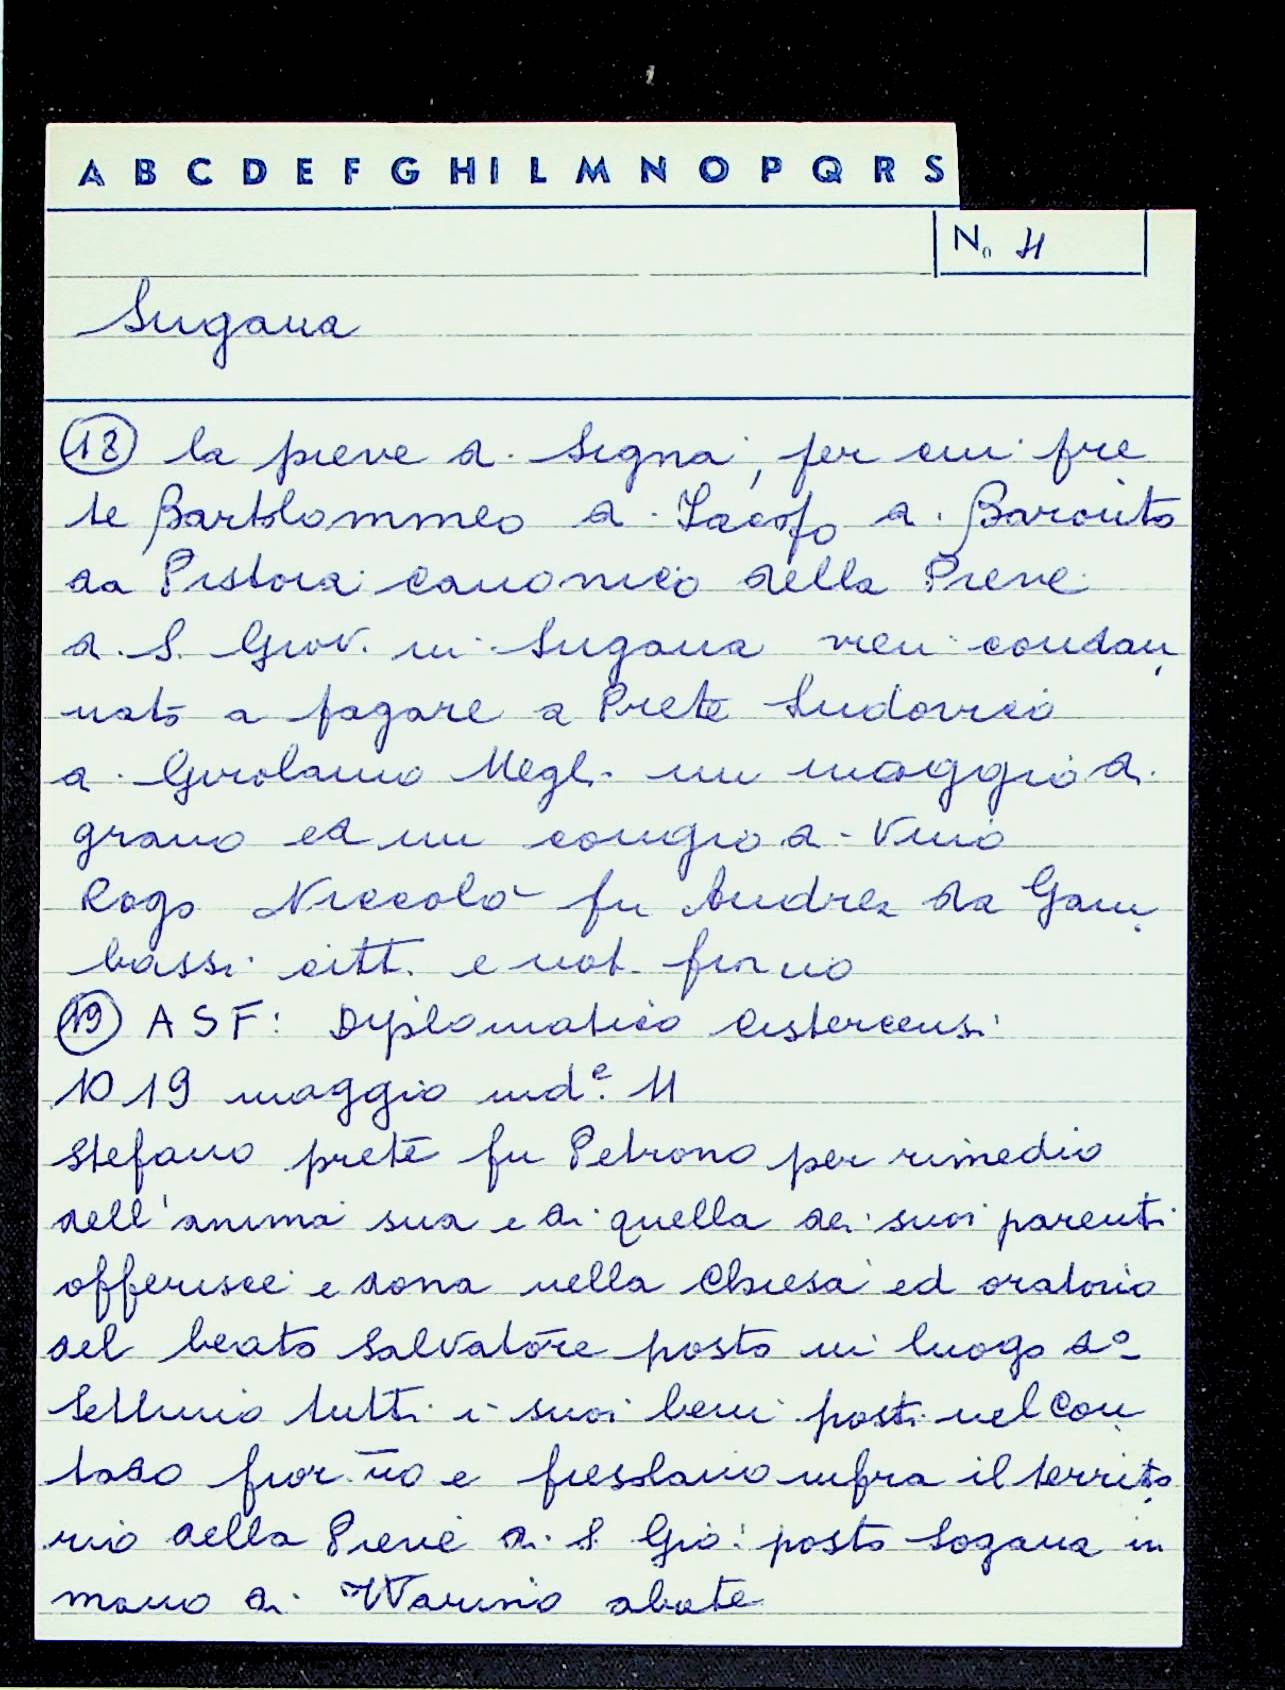 A B C D E F G H I L M N O P Q R S
No 11
Sugana
(18) la pieve di Signa, per cui pre
te Bartolommeo di Iacopo di
da Pistoia canonico della Pieve
di S. Giov. in Sugana vien condan
nato a pagare a Prete Ludovico
di Girolamo Megl. un moggio di
grano ed un congio di vino
Rogo Niccolò fu Andrea da Gam
bassi citt. e not. fior.no
(19) ASF: Diplomatico Cistercensi
1019 maggio ind.e 11
Stefano prete fu Petrono per rimedio
dell'anima sua e di quella dei suoi parenti
offerisce e dona nella Chiesa ed oratorio
del beato Salvatore posto in luogo do
Settimo tutti i suoi beni posti nel Con
tado fior.no e fiesolano infra il territo
rio della Pieve di S. Gio: posto Sogana in
mano di Warino abate